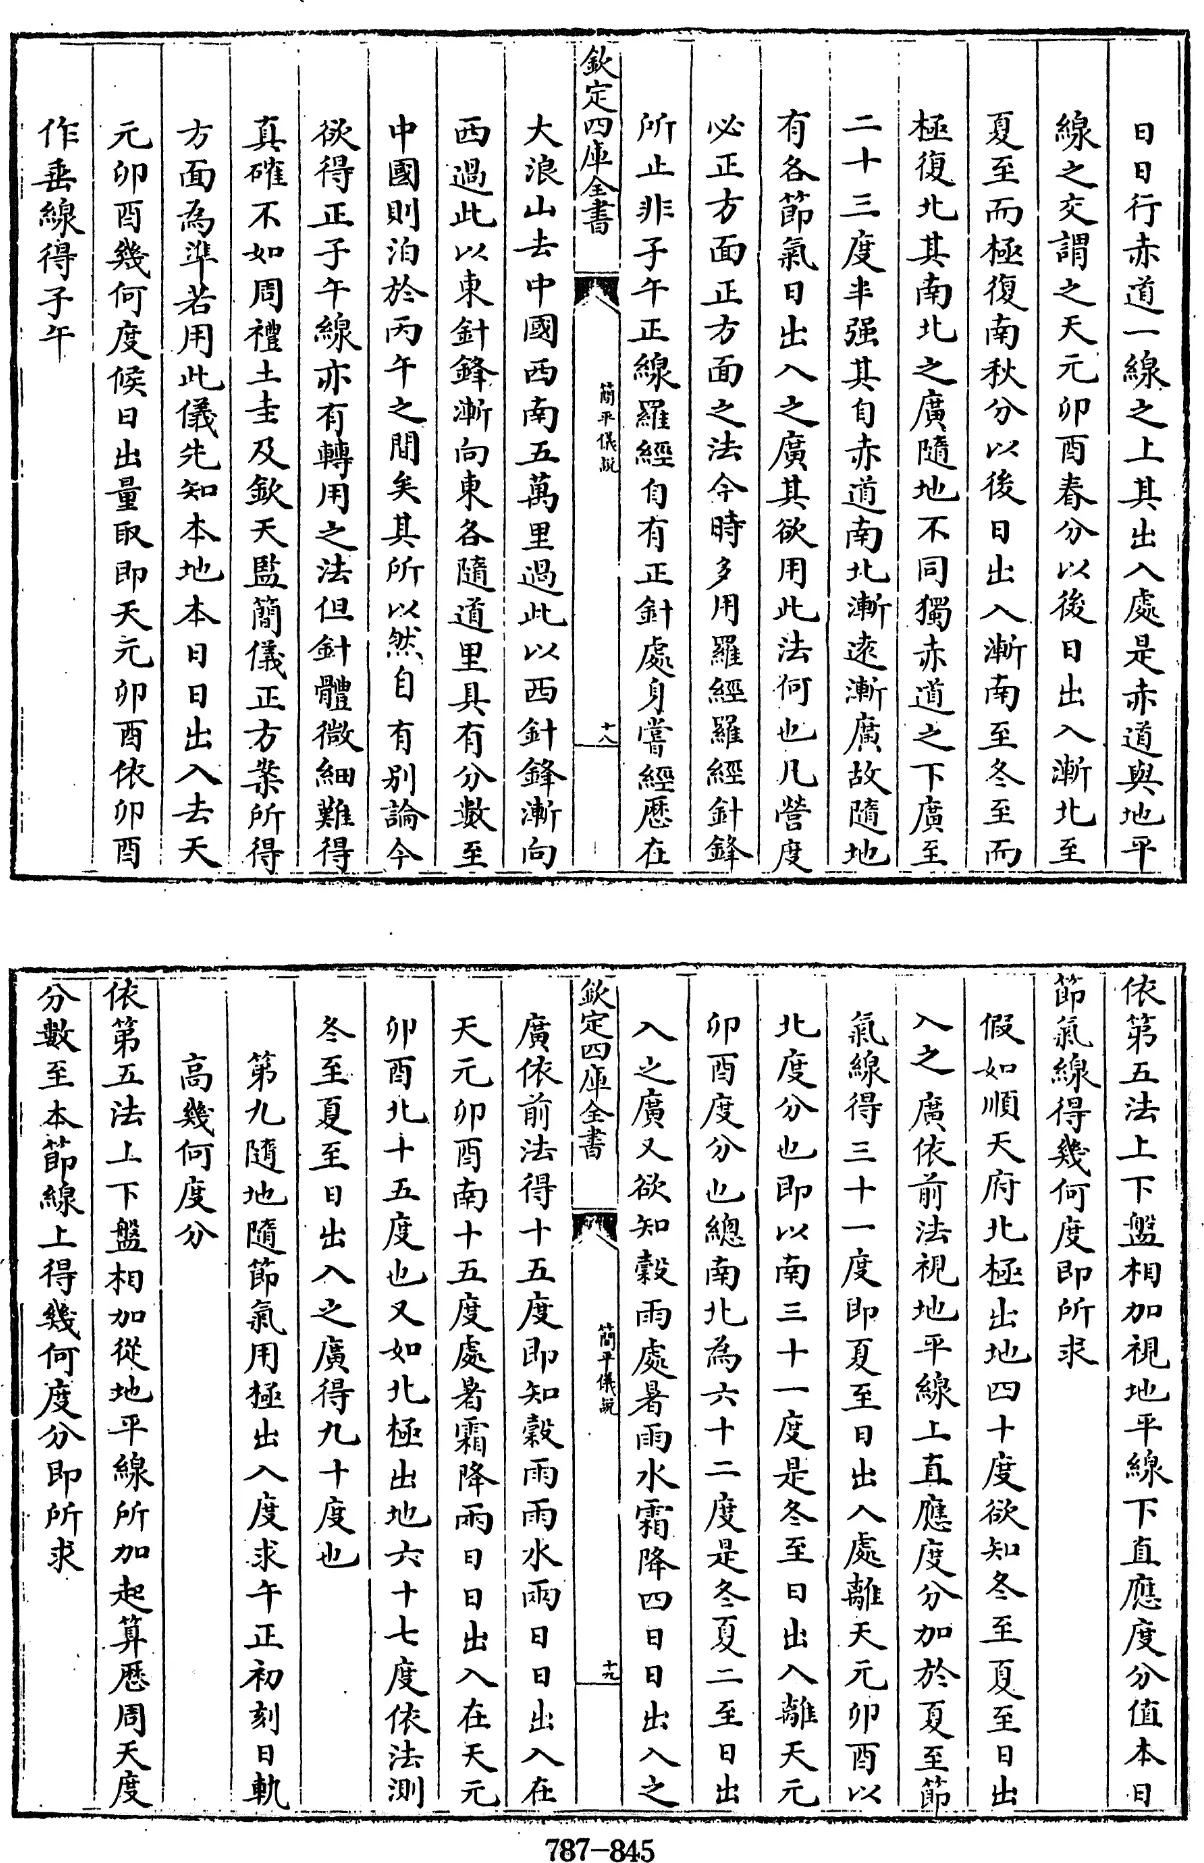 日日行赤道一線之上其出入處是赤道與地平
線之交謂之天元卯酉春分以後日出入漸北至
夏至而極復南秋分以後日出入漸南至冬至而
極復北其南北之廣隨地不同獨赤道之下廣至
二十三度半强其自赤道南北漸逺漸廣故隨地
有各節氣日出入之廣其欲用此法何也凡營度
必正方面正方面之法今時多用羅經羅經針鋒
所止非子午正線羅經自有正針處身嘗經歴在
欽定四庫全書
簡平儀説
十八
大浪山去中國西南五萬里過此以西針鋒漸向
西過此以東針鋒漸向東各隨道里具有分數至
中國則泊於丙午之間矣其所以然自有別論今
欲得正子午線亦有轉用之法但針體微細難得
真確不如周禮土圭及欽天監簡儀正方案所得
方面為準若用此儀先知本地本日日出入去天
元卯酉幾何度候日出量取即天元卯酉依卯酉
作垂線得子午
依第五法上下盤相加視地平線下直應度分值本日
節氣線得幾何度即所求
假如順天府北極出地四十度欲知冬至夏至日出
入之廣依前法視地平線上直應度分加於夏至節
氣線得三十一度即夏至日出入處離天元卯酉以
北度分也即以南三十一度是冬至日出入離天元
卯酉度分也總南北為六十二度是冬夏二至日出
入之廣又欲知穀雨處暑雨水霜降四日日出入之
欽定四庫全書
簡平儀説
十九
廣依前法得十五度即知穀雨雨水兩日日出入在
天元卯酉南十五度處暑霜降兩日日出入在天元
卯酉北十五度也又如北極出地六十七度依法測
冬至夏至日出入之廣得九十度也
第九隨地隨節氣用極出入度求午正初刻日軌
高幾何度分
依第五法上下盤相加從地平線所加起算歴周天度
分數至本節線上得幾何度分即所求
787-845